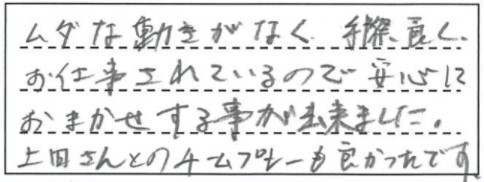 ムダな動きがなく手際良く、
お仕事されているので安心に
おまかせする事が出来ました。
上田さんとのチームプレーも良かったです。